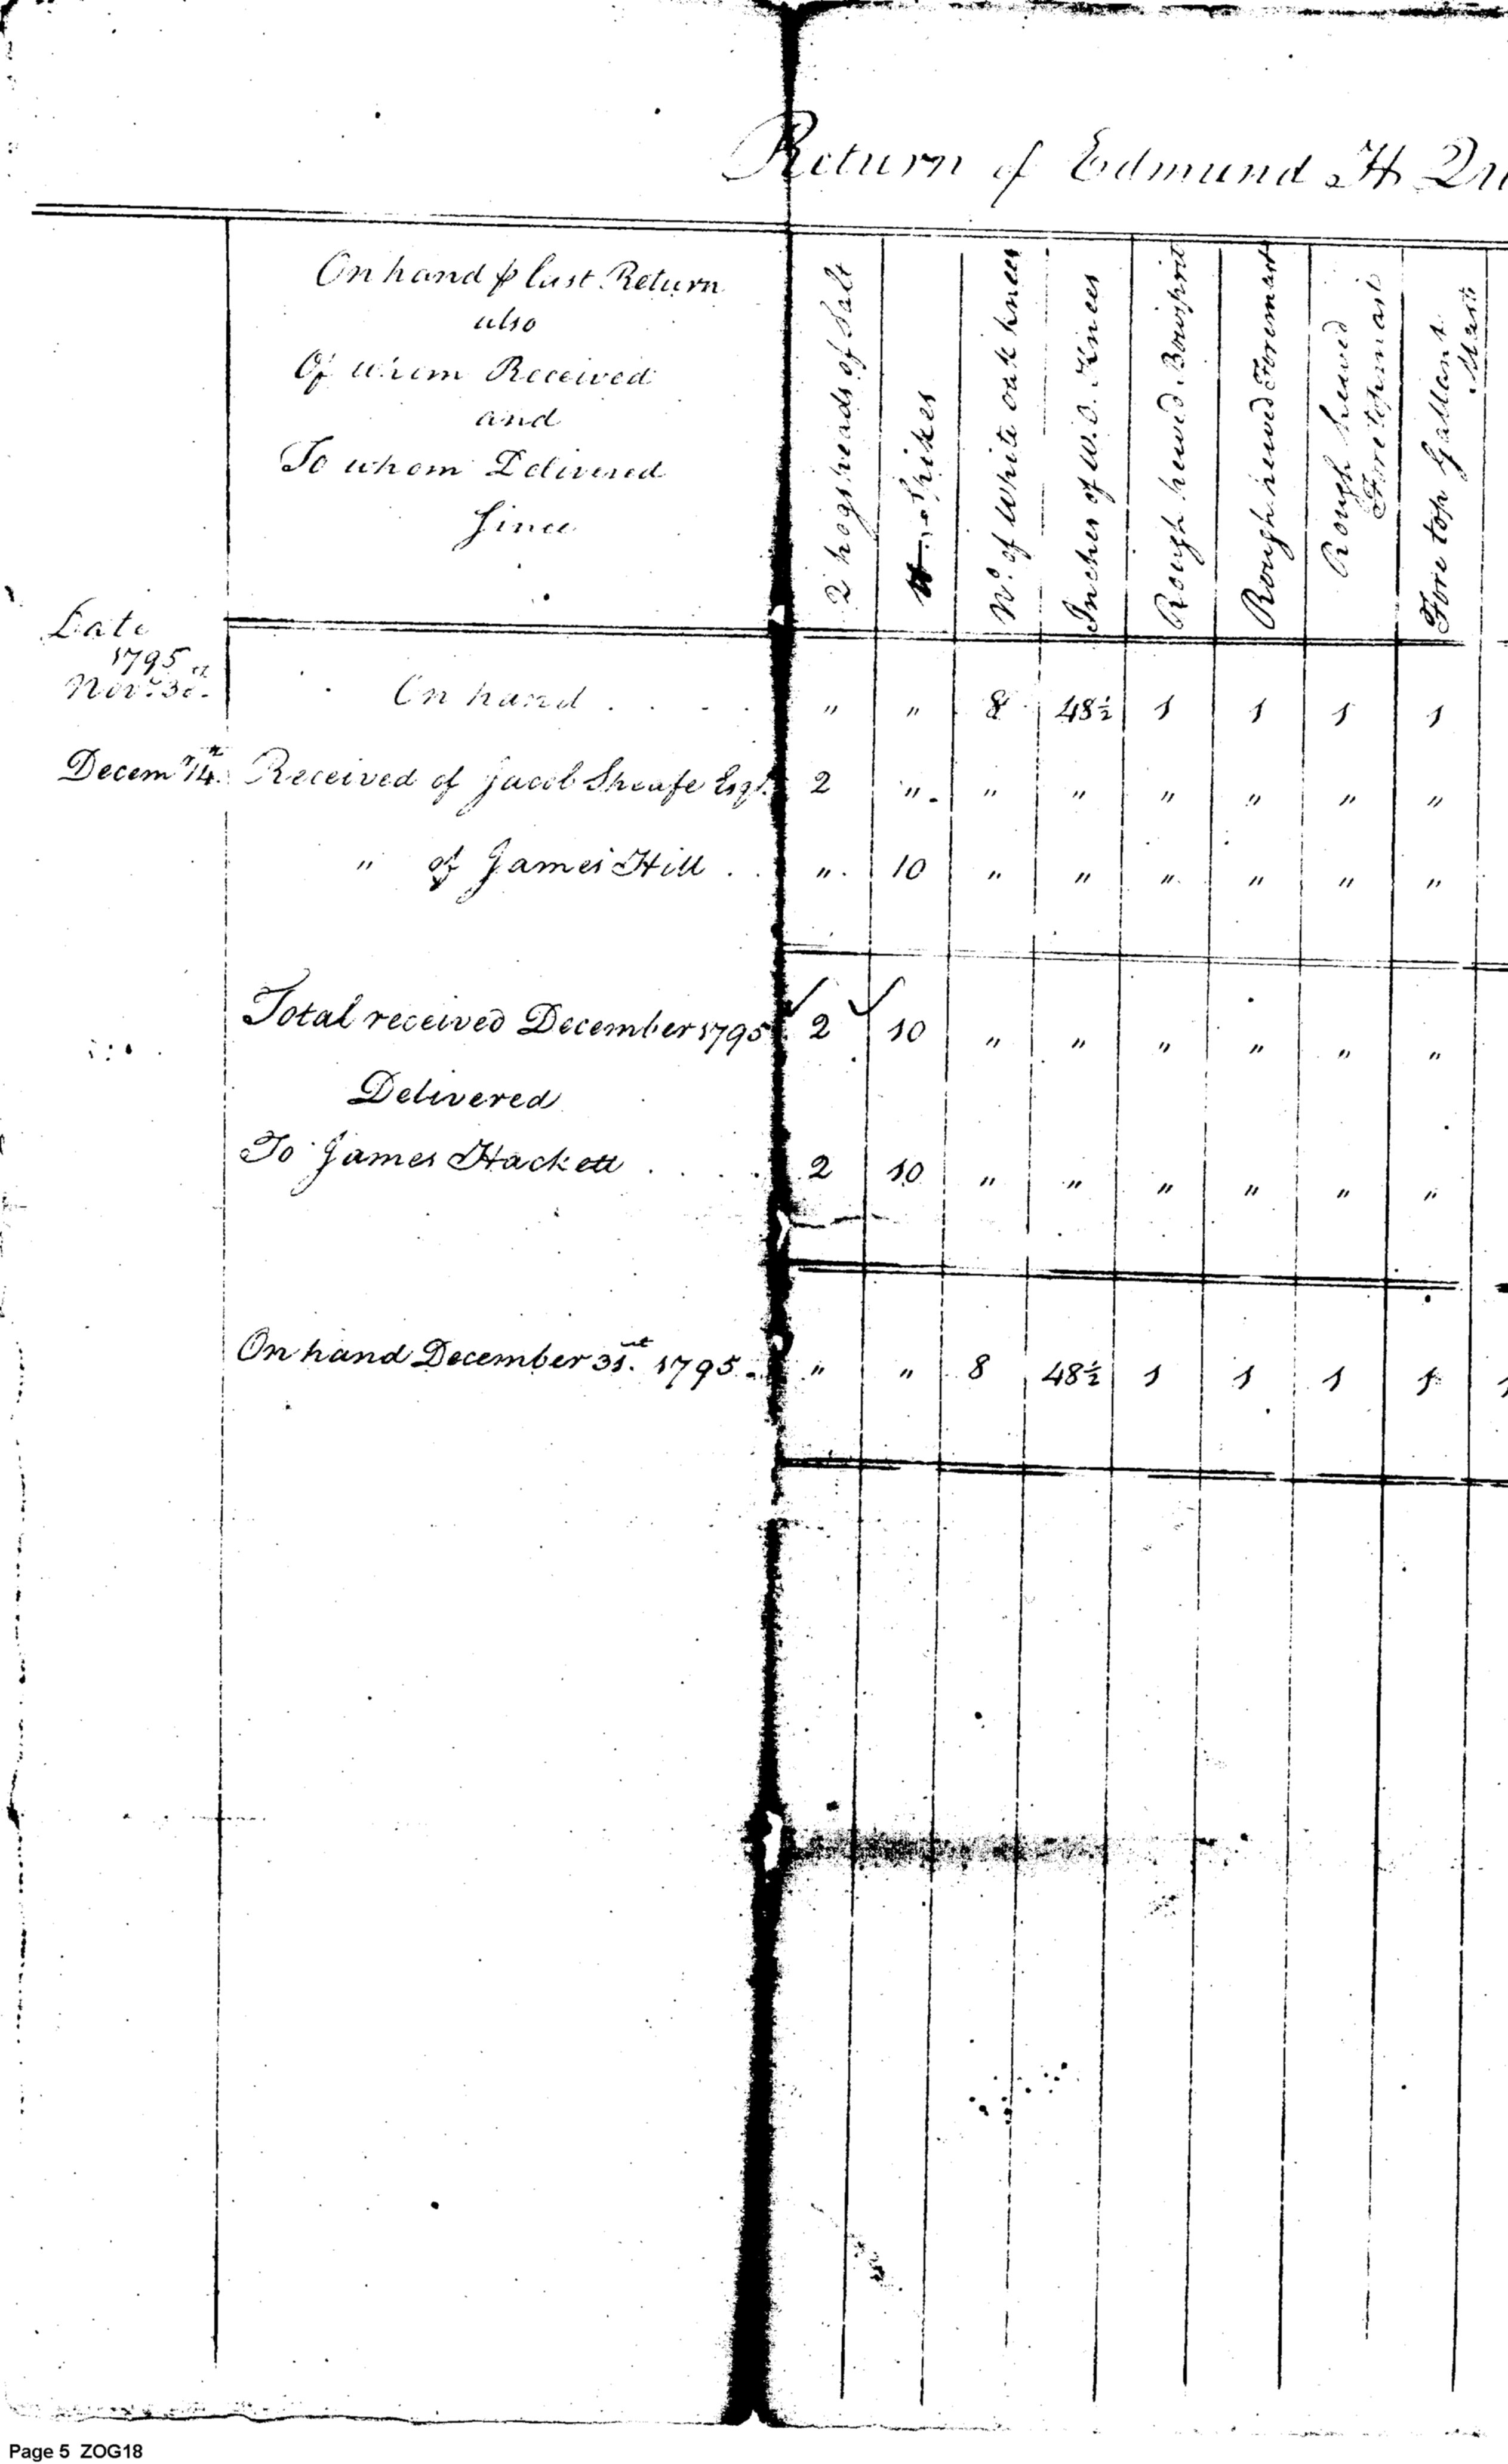 Return of Edmund H Qu
On hand ⅌ last Return
also
Of whom Received
and
To whom Delivered
Since
2 hogsheads of Salt
Spikes
No. of White oak knees
Inches of W.O. Knees
Rough hewed Bowsprit
Rough hewed Foremast
Rough hewed
Foretopmast
Fore top Gallant
Mast
Date
1795
Novr. 30th. On hand . . . . " " 8 48½ 1 1 1 1
Decemr. 14th. Received of Jacob Sheafe Esqr. 2 " " " " " " "
" of James Hill . . " 10 " " " " " "
Total received December 1795 2 10 " " " " " "
Delivered
To James Hackett . . . . 2 10 " " " " " "
On hand December 31st. 1795 " " 8 48½ 1 1 1 1 1
Page 5 ZOG18